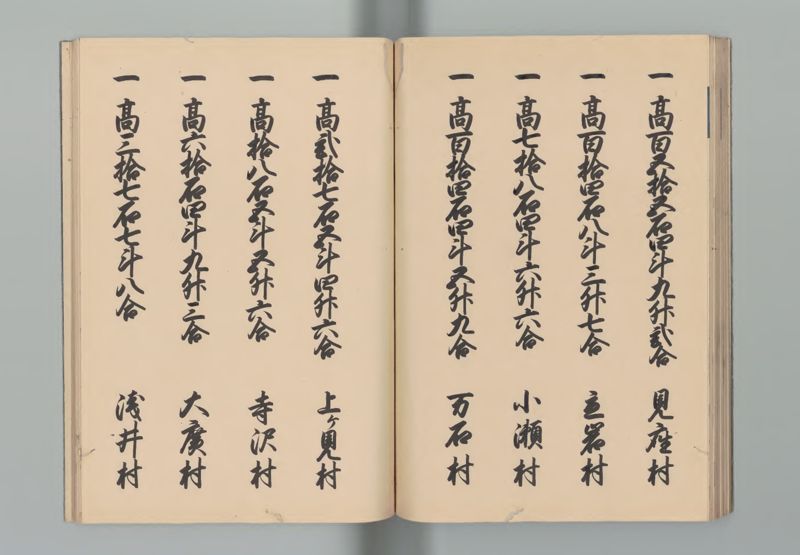 一 高百五拾五石四斗九升弐合 見座村
一 高百拾四石八斗三升七合 立岩村
一 高七拾八石四斗六升六合 小瀬村
一 高百拾四石四斗五升九合 万石村
一 高弐拾七石五斗四升六合 上ヶ見村
一 高拾八石五斗五升六合 寺沢村
一 高六拾石四斗九升三合 大廣村
一 高三拾七石七斗八合 浅井村